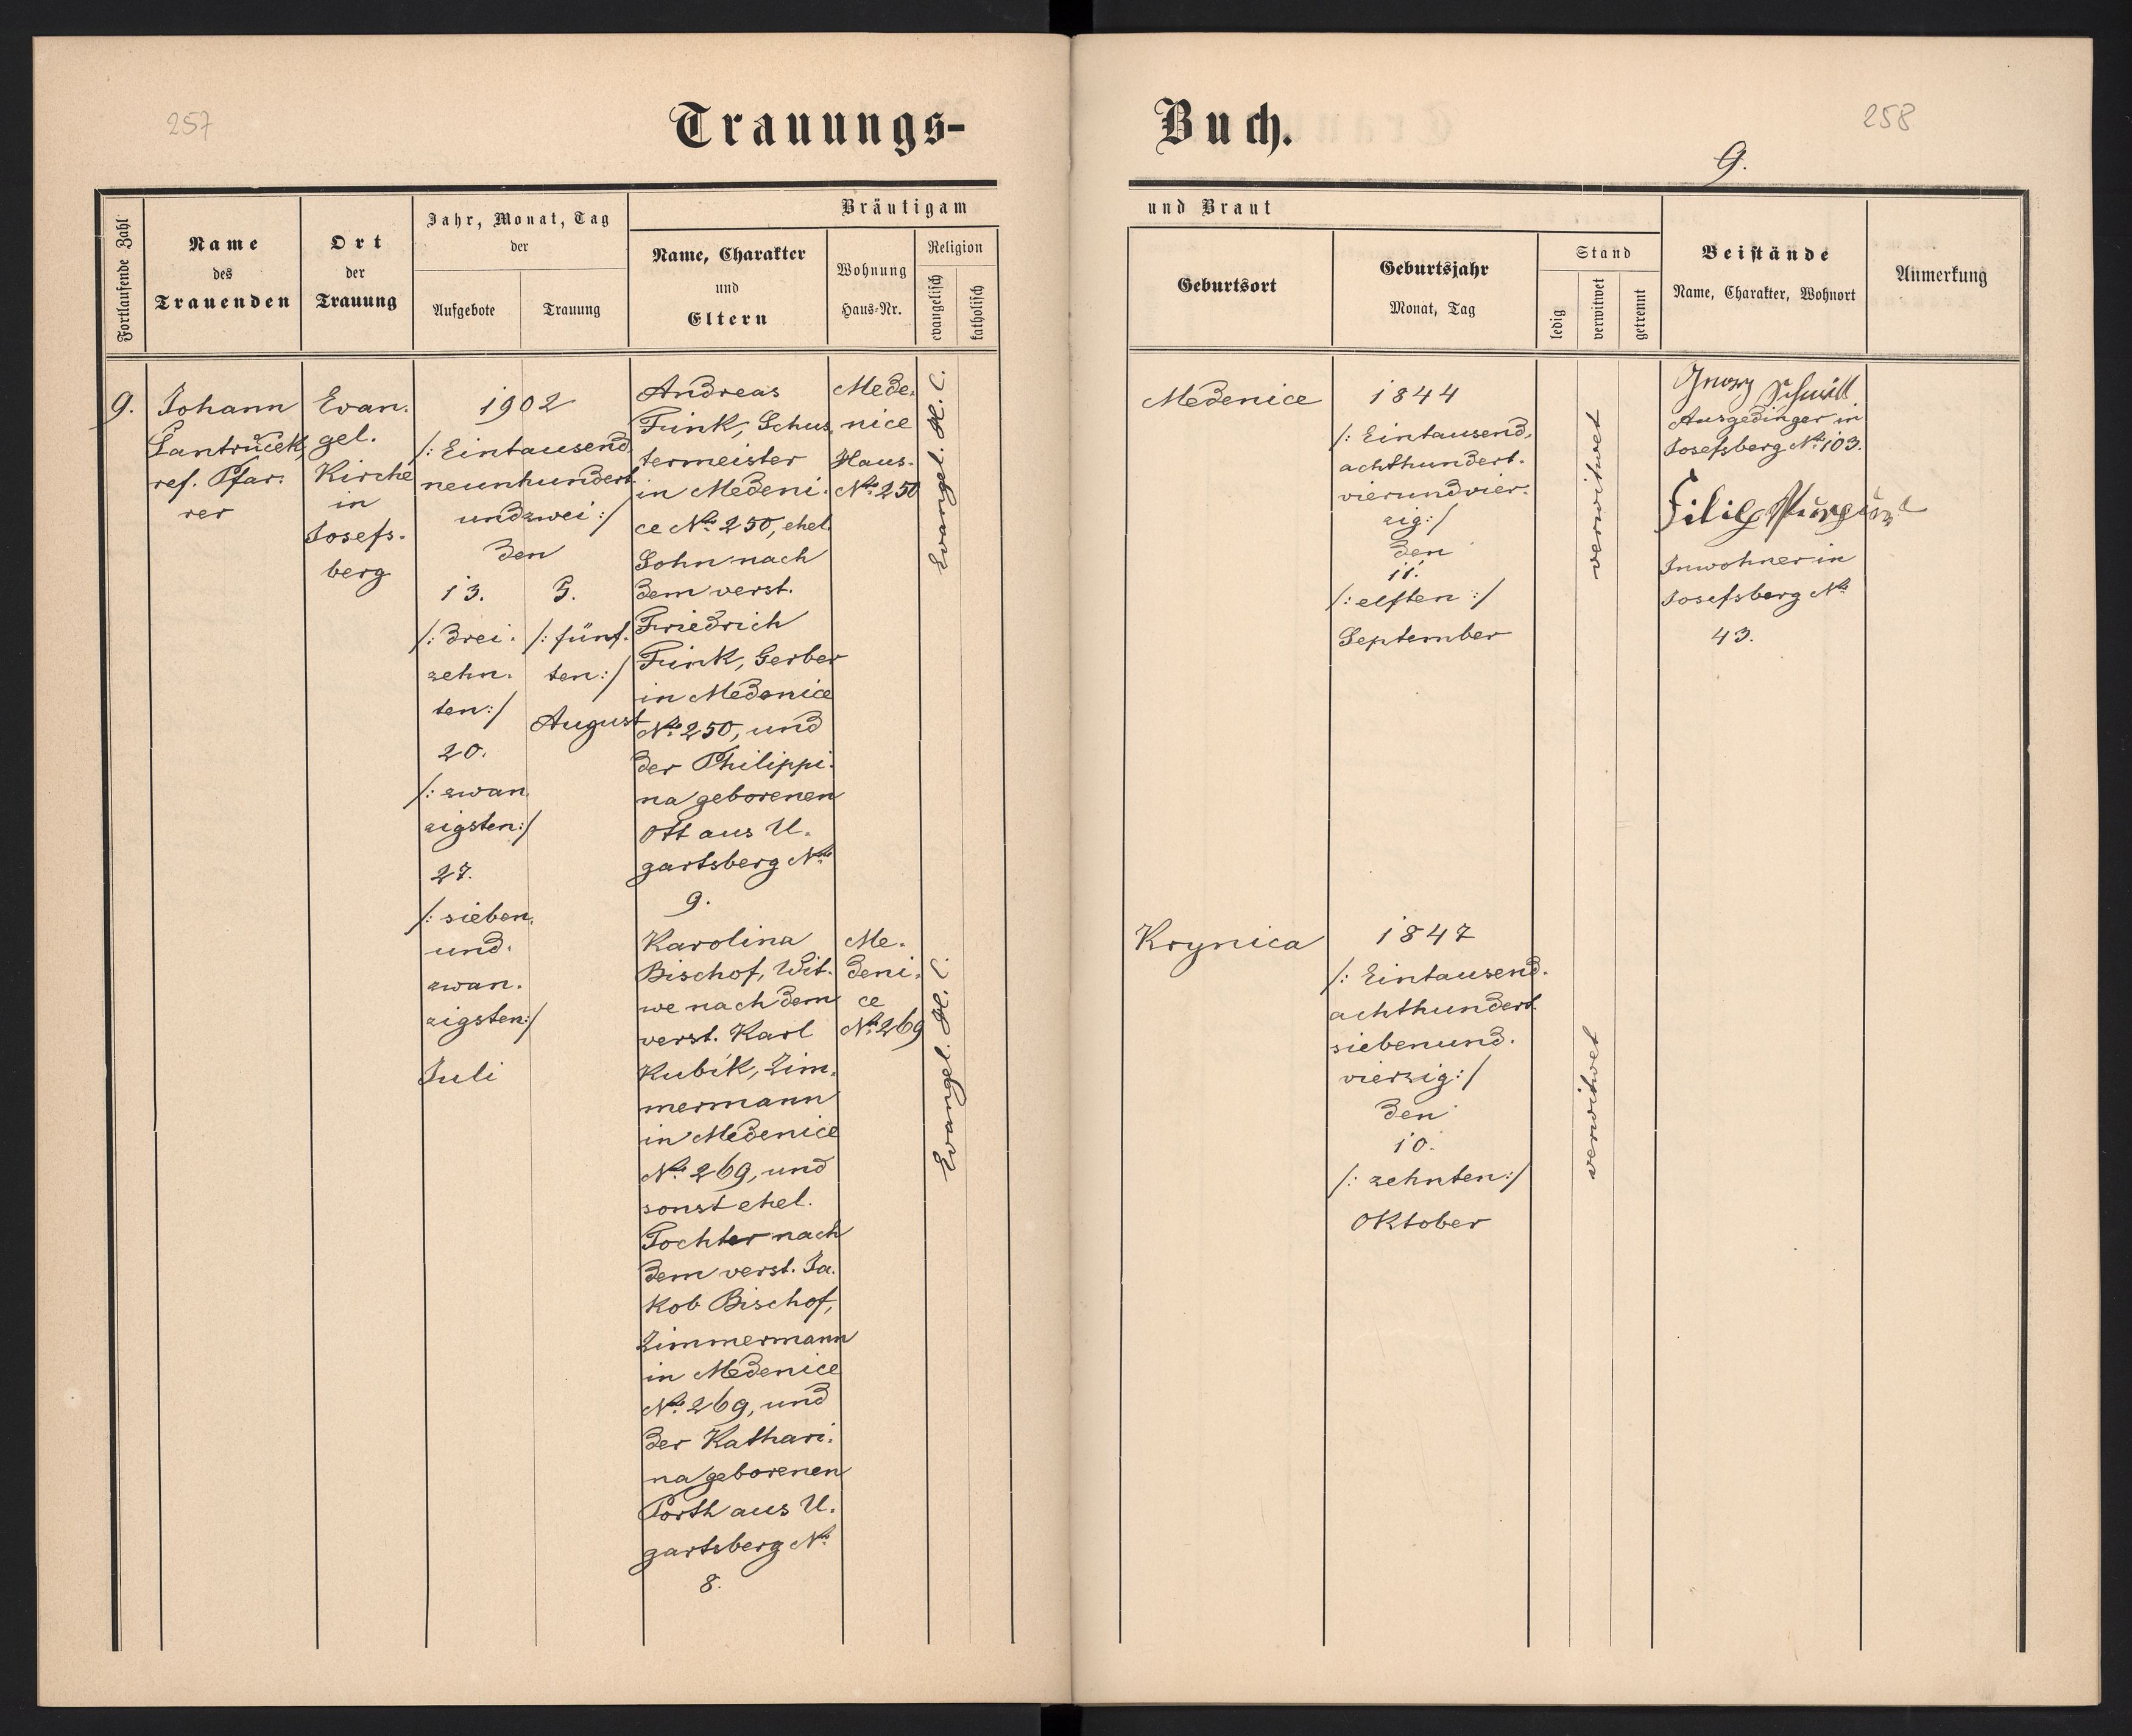 257
Trauungs-
Buch.
258
9.
Fortlaufende Zahl
Name
des
Trauenden
Ort
der
Trauung
Jahr, Monat, Tag
der
Aufgebote
Trauung
Bräutigam
Name, Charakter
und
Eltern
Wohnung
Haus-Nr.
Religion
evangelisch
katholisch
und Braut
Geburtsort
Geburtsjahr
Monat, Tag
Stand
ledig
verwitwet
getrennt
Beistände
Name, Charakter, Wohnort
Anmerkung
9.
Johann
Santrůček
ref. Pfar-
rer
Evan-
gel.
Kirche
in
Josefs-
berg
1902
/: Eintausend
neunhundert
undzwei :/
den
13.
/: drei-
zehn-
ten :/
20.
/: zwan
zigsten :/
27.
/: sieben-
und-
zwan-
zigsten :/
Juli
5.
/: fünf-
ten :/
August
Andreas
Fink, Schus-
termeister
in Medeni-
ce No. 250, ehel.
Sohn nach
dem verst.
Friedrich
Fink, Gerber
in Medenice
No. 250, und
der Philippi-
na geborenen
Ott aus U-
gartsberg No.
9.
Mede-
nice
Haus-
No. 250
Evangel. H. C.
Medenice
1844
/: Eintausend-
achthundert-
vierundvier-
zig :/
den
11.
/: elften :/
September
verwitwet
Georg Schmitt
Ausgedinger in
Josefsberg No. 103.
Filip
Inwohner in
Josefsberg No.
43.
Karolina
Bischof, Wit-
we nach dem
verst. Karl
Kubik, Zim-
mermann
in Medenice
No. 269, und
sonst ehel.
Tochter nach
dem verst. Ja-
kob Bischof,
Zimmermann
in Medenice
No. 269, und
der Kathari-
na geborenen
Porth aus U-
gartsberg No.
8.
Me-
deni-
ce
No. 269
Evangel. H. C.
Krynica
1847
/: Eintausend-
achthundert
siebenund-
vierzig :/
den
10.
/: zehnten :/
Oktober
verwitwet